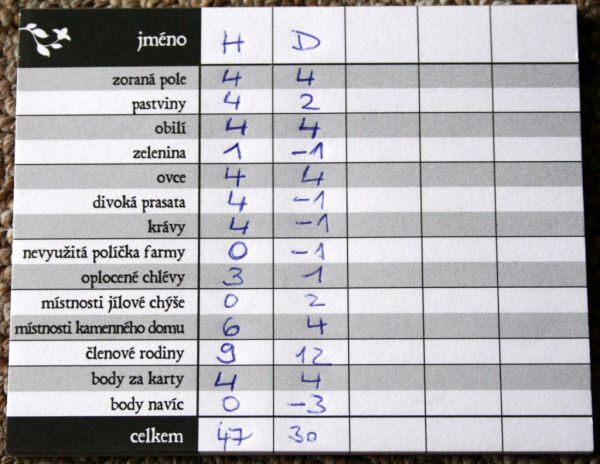 jméno H D
zoraná pole 4 4
pastviny 4 2
obilí 4 4
zelenina 1 -1
ovce 4 4
divoká prasata 4 -1
krávy 4 -1
nevyužitá políčka farmy 0 -1
oplocené chlévy 3 1
místnosti jílové chýše 0 2
místnosti kamenného domu 6 4
členové rodiny 9 12
body za karty 4 4
body navíc 0 -3
celkem 47 30